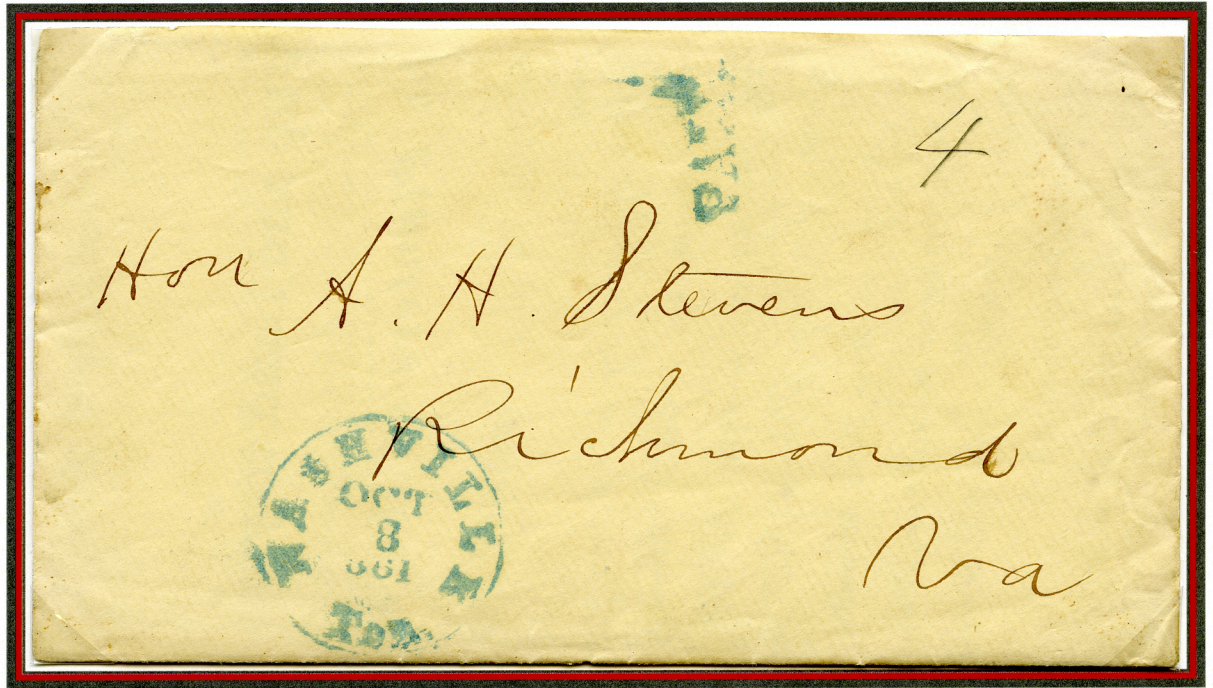 PAID
4
Hon A. H. Stevens
Richmond
Va
NASHVILLE
Oct
8
1861
Ten